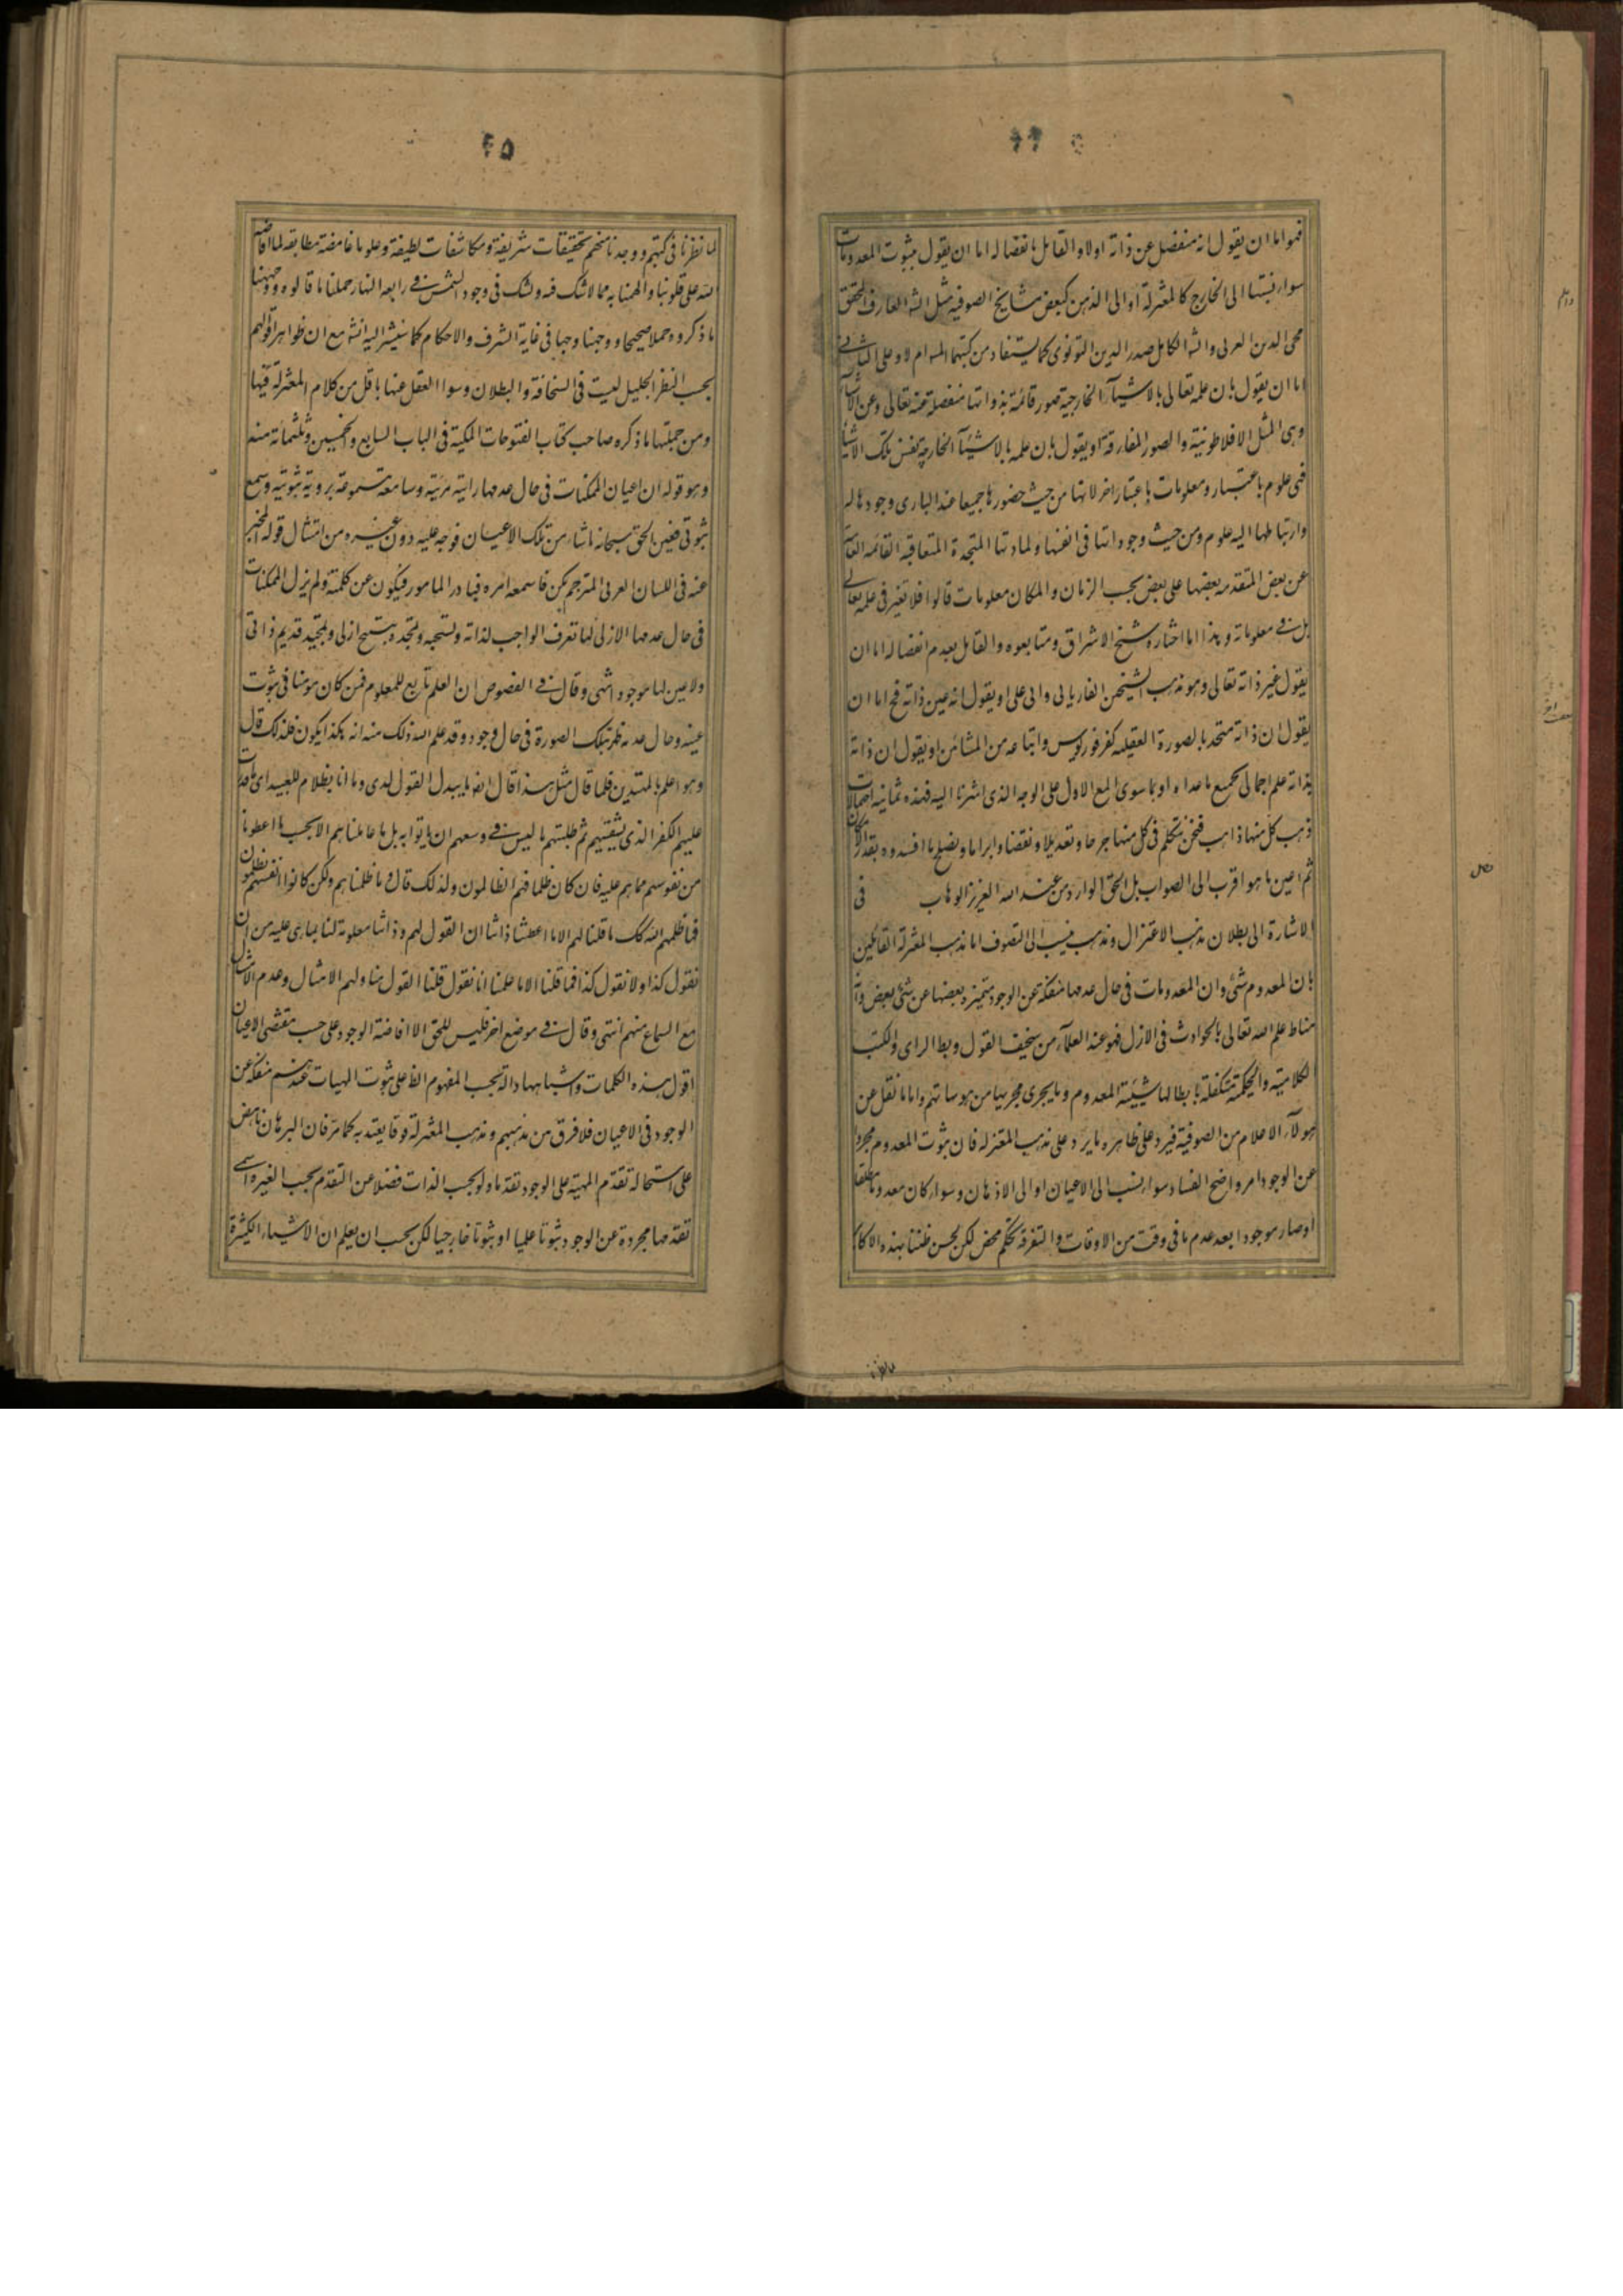 فهو اما ان يقول انه منفصل عن ذاته اولا والقائل بانفصاله اما ان يقول بثبوت المعدومات
سواء نسبتها الى الخارج كالمعتزلة او الى الذهن كبعض مشايخ الصوفيه مثل الشه العارف المحقق
محى الدين العربى والشه الكامل صدر الدين القونوى كما يستفاد من كتبهما المشه ام لا وعلى الثانى
اما ان يقول بان علمه تعالى بالاشيآء الخارجية صور قائمة بذواتها منفصلة عنه تعالى وعن الاشيآء
وهى المثل الافلاطونية والصور المفارقة او يقول بان علمه بالاشيآء الخارجية نفس تلك الاشيآء
فهى علوم باعتبار ومعلومات باعتبار اخر لانها من حيث حضورها جميعا عند البارى وجودها له
وارتباطها اليه علوم ومن حيث وجوداتها فى انفسها ولمادتها المتجددة المتعاقبة الغائبة
عن بعض المتقدمه بعضها على بعض بحسب الزمان والمكان معلومات قالوا فلا تغير فى علمه تعالى
بل فى معلوماته وهذا اما اختاره شيخ الاشراق ومتابعوه والقائل بعدم انفصاله اما ان
يقول غير ذاته تعالى وهو مذهب الشيخين الفاريابى وابى على او يقول انه عين ذاته فح اما ان
يقول ان ذاته متحد بالصورة العقليه كفرفوريوس واتباعه من المشائين او يقول ان ذاته
بذاته علم اجمالى بجميع ما عداه او بما سوى المع الاول على الوجه الذى اشرنا اليه فهذه ثمانيه احتمالات
ذهب كل منها ذاهب فنحن نتكلم فى كل منها جرحا وتعديلا ونقضا وابراما ونصلح ما افسدوه بقدر الامكان
ثم اعين ما هو اقرب الى الصواب بل الحق الوارد من عند الله العزيز الوهاب فى
الاشارة الى بطلان مذهب الاعتزال ومذهب ينسب الى التصوف اما مذهب المعتزلة القائلين
بان المعدوم شئ وان المعدومات فى حال عدمها منفكة عن الوجود متميزة بعضها عن شئ بعض وانه
مناط علم الله تعالى بالحوادث فى الازل فهو عند العقلآء من سخيف القول وبط الراى والكتب
الكلامية والحكمية متكفلة بابطالها شيئية المعدوم وما يجرى مجريها من هوساتهم واما ما نقل عن
هولآء الاعلام من الصوفية فيرد على ظاهره ما يرد على مذهب المعتزله فان ثبوت المعدوم مجردا
عن الوجود امر واضح الفساد سواء نسب الى الاعيان او الى الاذهان وسواء كان معدوما مطلقا
او صار موجودا بعد عدمه فى وقت من الاوقات والتفرقة تحكم محض لكن لحسن ظننا بهذه الاكابر
لما نظرنا فى كتبهم ووجدنا منهم تحقيقات شريفة ومكاشفات لطيفة وعلوما غامضة مطابقه لما افاضه
الله على قلوبنا والهمنا به مما لا نشك فيه ونشك فى وجود الشمس فى رابعه النهار حملنا ما قالوه ووجهنا
ما ذكروه حملا صحيحا ووجها وجيها فى غاية الشرف والاحكام كما سنشير اليه انشه مع ان ظواهر اقوالهم
بحسب النظر الجليل ليست فى السخافة والبطلان وسوا العقل عنها باقل من كلام المعتزلة فيها
ومن جملتها ما ذكره صاحب كتاب الفتوحات المكية فى الباب السابع والخمسين وثلثمائة منه
وهو قوله ان اعيان الممكنات فى حال عدمها رايته مرئية وسامعة مسموعة برؤية ثبوتية وسمع
ثبوتى فعين الحق سبحانه ما شاء من تلك الاعيان فوجه عليه دون غيره من امثاله قوله المخبر
عنه فى اللسان العربى المترجم بكن فاسمعه امره فبادر المامور فيكون عن كلمته ولم يزل الممكنات
فى حال عدمها الازلى لها تعرف الواجب لذاته وتسبحه وتمجده بتسبيح ازلى وتمجيد قديم ذاتى
ولا عين لها موجود انتهى وقال فى الفصوص ان العلم تابع للمعلوم فمن كان مومنا فى ثبوت
عينه وحال عدمه ظهر بتلك الصورة فى حال وجوده وقد علم الله ذلك منه انه هكذا يكون فلذلك قال
وهو اعلم بالمهتدين فلما قال مثل هذا قال ايضا ما يبدل القول لدى وما انا بظلام للعبيد اى ما قدرت
عليهم الكفر الذى يشقيهم ثم طلبتهم ما ليس فى وسعهم ان ياتوا به بل ما عاملناهم الا بحسب ما اعطونا
من نفوسهم مما هم عليه فان كان ظلما فهم الظالمون ولذلك قال وما ظلمناهم ولكن كانوا انفسهم يظلمون
فما ظلمهم الله كك ما قلنا لهم الا ما اعطته ذاتنا ان القول لهم وذاتنا معلومة لنا بما هى عليه من ان
نقول كذا ولا نقول كذا فما قلنا الا ما علمنا انا نقول قلنا القول منا ولهم الامتثال وعدم الامتثال
مع السماع منهم انتهى وقال فى موضع اخر فليس للحق الا افاضة الوجود على حسب مقتضى الاعيان
اقول هذه الكلمات واشباهها دالة بحسب المفهوم الظ على ثبوت المهيات عندهم منفكة عن
الوجود فى الاعيان فلا فرق بين مذهبهم ومذهب المعتزلة فرقا يعتد به كما مر فان البرهان ناهض
على استحالة تقدم المهية على الوجود تقدما ولو بحسب الذات فضلا عن التقدم بحسب الغير واى
تقدمها مجردة عن الوجود ثبوتا علميا او ثبوتا خارجيا لكن يجب ان يعلم ان الاشياء الكثيرة